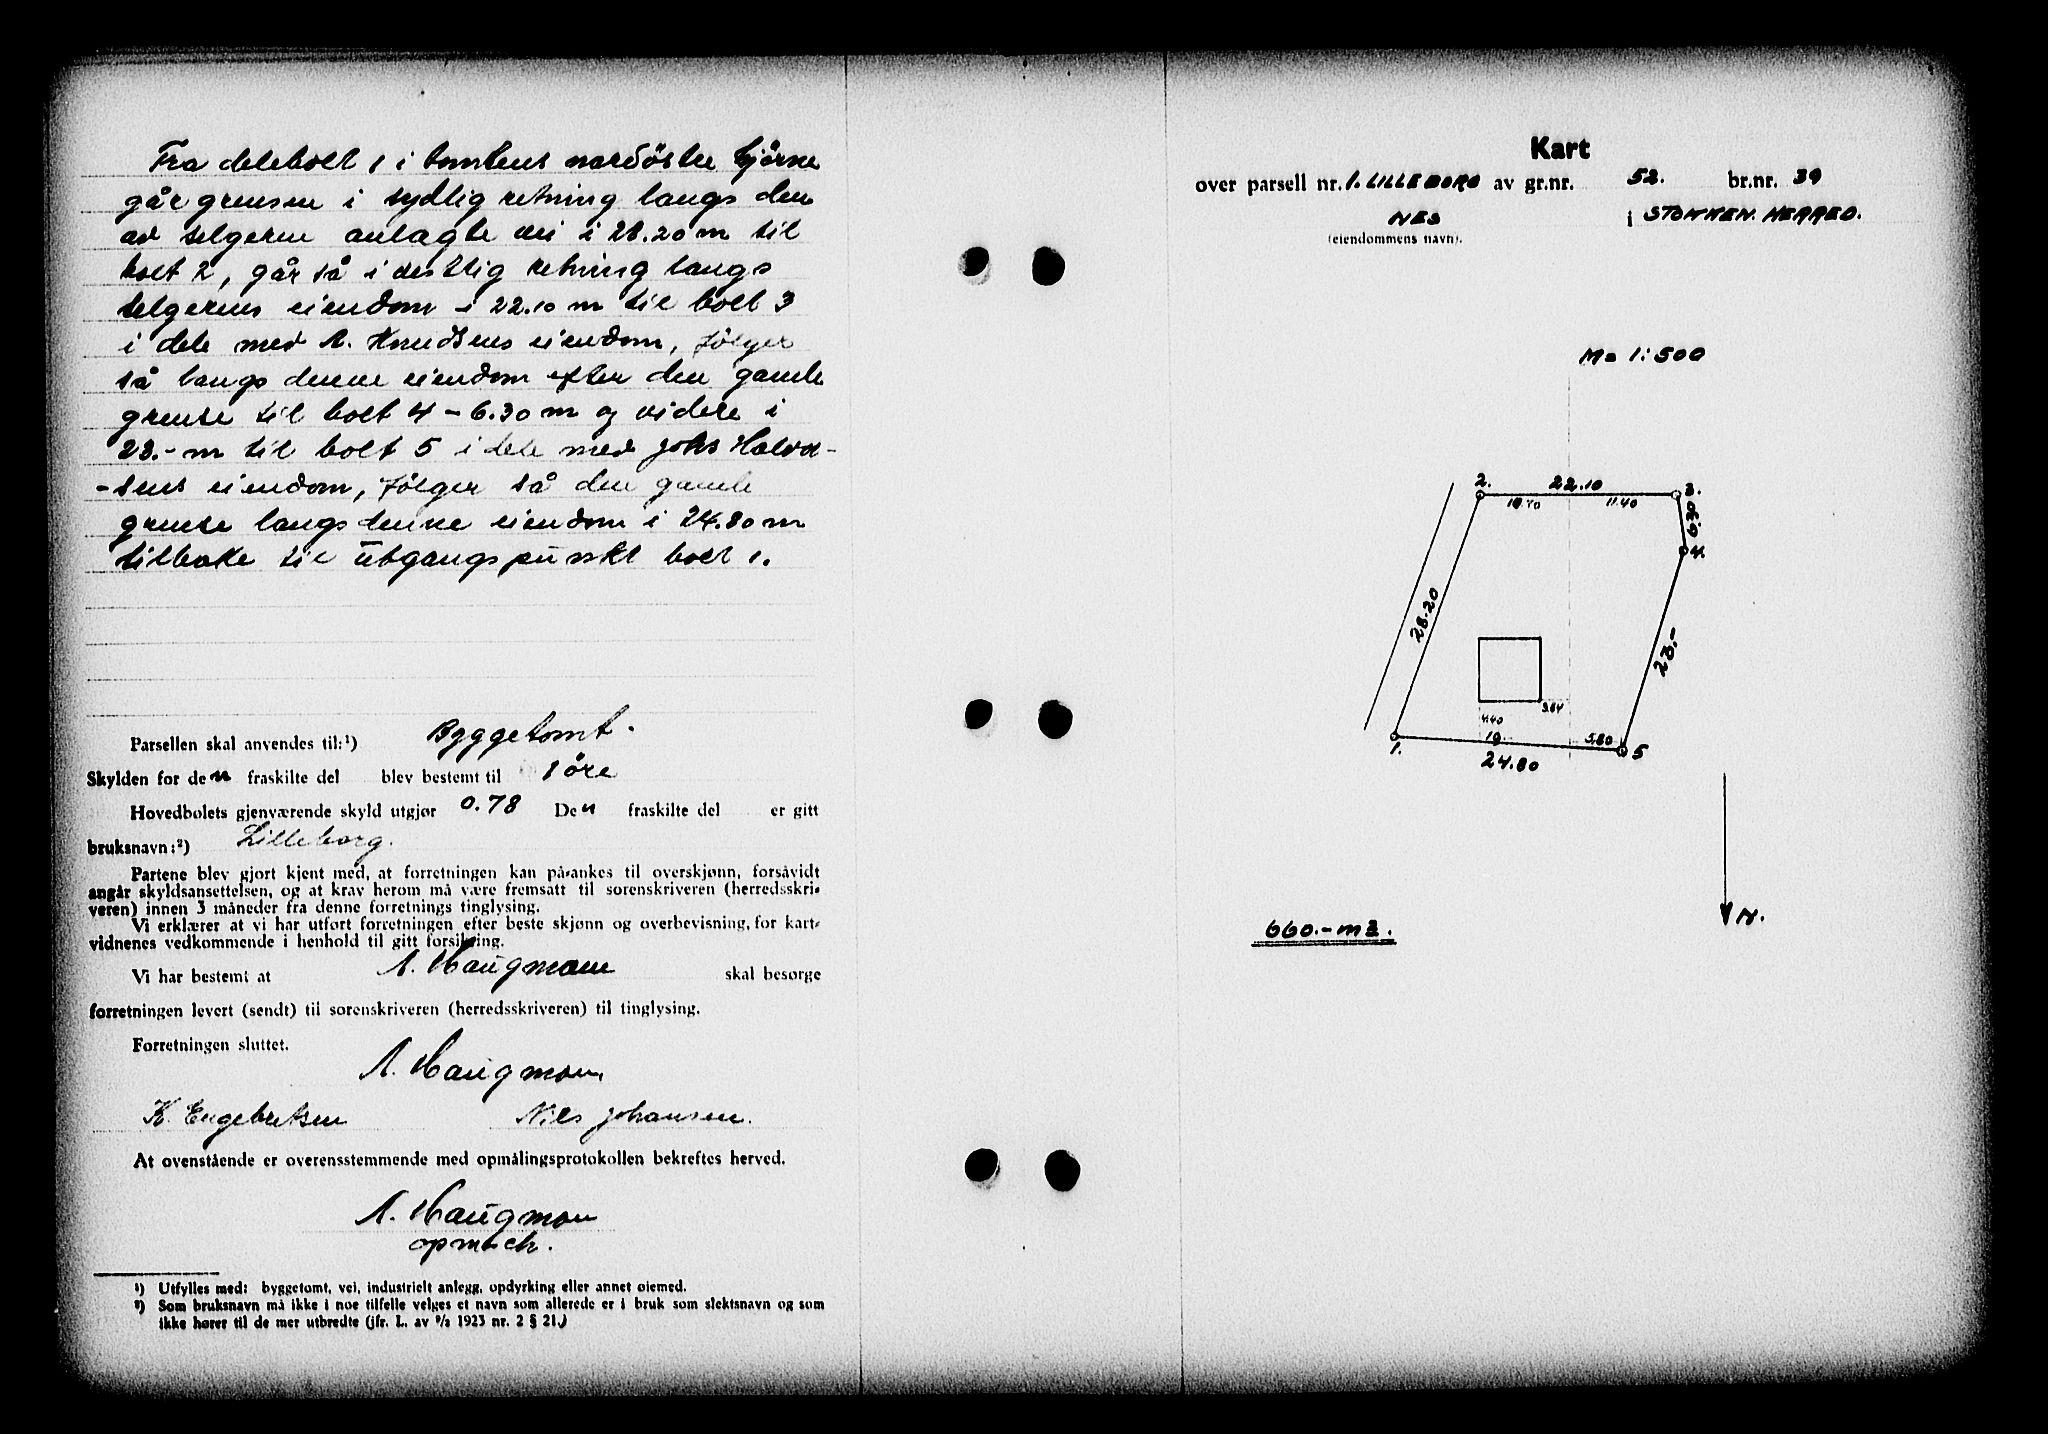 Fra delebolt 1 i tomtens nordöstre hjörne
går grensen i sydlig retning langs den
av selgeren anlagte vei i 28.20 m til
bolt 2, går så i vestlig retning langs
selgerens eiendom - i 22.10 m til bolt 3
i dele med A. Knudsens eiendom, følger
så langs denne eiendom efter den gamle
grense til bolt 4 - 6.30 m og videre i
23.- m til bolt 5 i dele med Johs Halvor-
-sens eiendom, følger så den gamle
grense langs denne eiendom i 24.80 m
tilbake til utgangspunkt bolt 1.
Parsellen skal anvendes til:¹) Byggetomt.
Skylden for den fraskilte del blev bestemt til 1 øre
Hovedbølets gjenværende skyld utgjør 0.78 Den fraskilte del er gitt
bruksnavn:²) Lilleborg.
Partene blev gjort kjent med, at forretningen kan påankes til overskjønn, forsåvidt
angår skyldsansettelsen, og at krav herom må være fremsatt til sorenskriveren (herredsskri-
veren) innen 3 måneder fra denne forretnings tinglysing.
Vi erklærer at vi har utført forretningen efter beste skjønn og overbevisning, for kart-
vidnenes vedkommende i henhold til gitt forsikring.
Vi har bestemt at A. Haugmoen skal besørge
forretningen levert (sendt) til sorenskriveren (herredsskriveren) til tinglysing.
Forretningen sluttet.
A. Haugmoen
K. Engebretsen Nils Johansen.
At ovenstående er overensstemmende med opmålingsprotokollen bekreftes herved.
A. Haugmoen
¹) Utfylles med: byggetomt, vei, industrielt anlegg, opdyrking eller annet øiemed.
²) Som bruksnavn må ikke i noe tilfelle velges et navn som allerede er i bruk som slektsnavn og som
ikke hører til de mer utbredte (jfr. L. av ⁹/₂ 1923 nr. 2 § 21.)
Kart
over parsell nr. 1. LILLEBORG av gr.nr. 52. br.nr. 39
NES i STOKKEN HERRED.
(eiendommens navn).
M= 1:500
2. 22.10 3.
10.70 11.40
6.30
4.
28.20
23.-
3.64
4.40
1. 19. 5.80 5
24.80
N.
660.- m2.